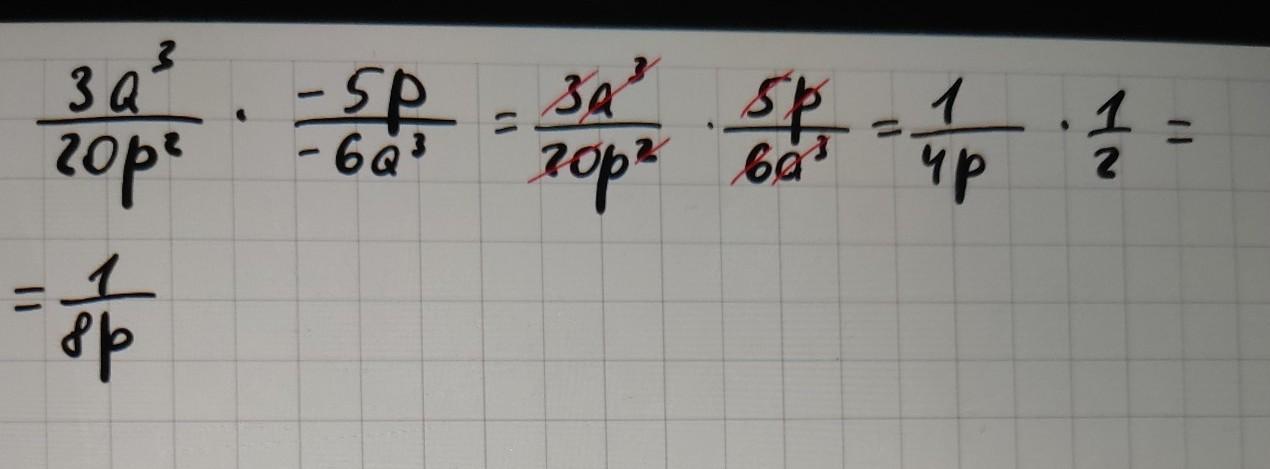 3a³/20p² · -5p/-6a³ = 3a³/20p² · 5p/6a³ = 1/4p · 1/2 =
= 1/8p